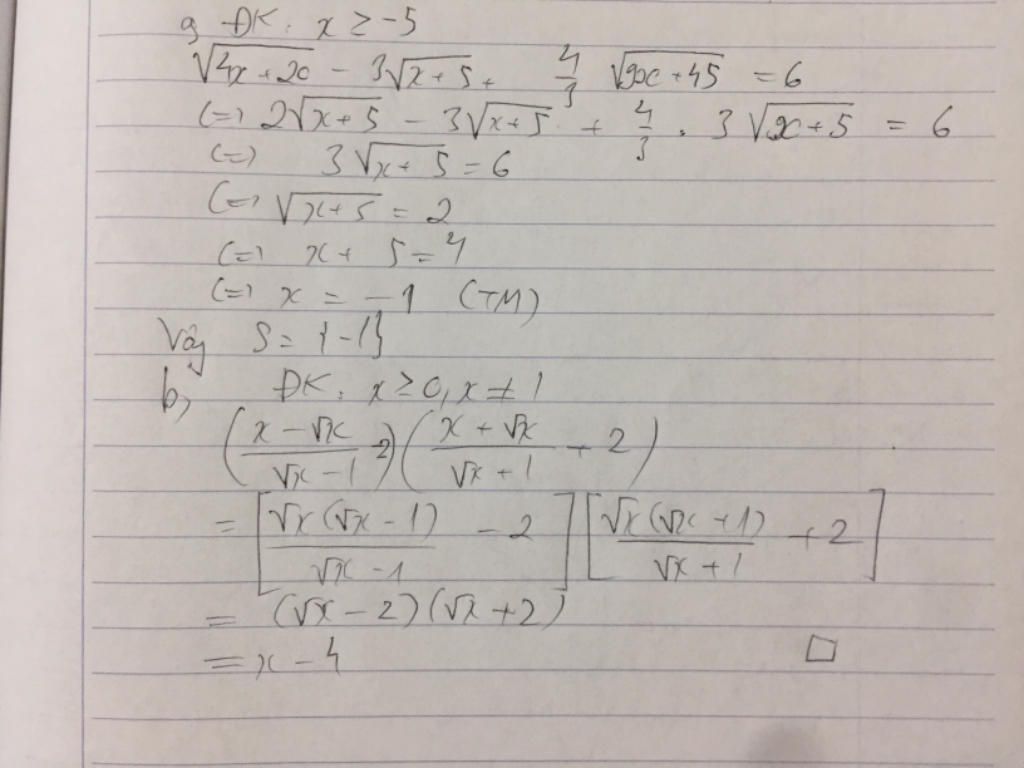 a, ĐK: x ≥ -5
√(4x+20) - 3√(x+5) + 4/3 √(9x+45) = 6
(=) 2√(x+5) - 3√(x+5) + 4/3 . 3√(x+5) = 6
(=) 3√(x+5) = 6
(=) √(x+5) = 2
(=) x + 5 = 4
(=) x = -1 (TM)
Vậy S = {-1}
b, ĐK: x ≥ 0, x ≠ 1
((x - √x)/(√x - 1) - 2)((x + √x)/(√x + 1) + 2)
= [(√x(√x - 1))/(√x - 1) - 2][(√x(√x + 1))/(√x + 1) + 2]
= (√x - 2)(√x + 2)
= x - 4 □